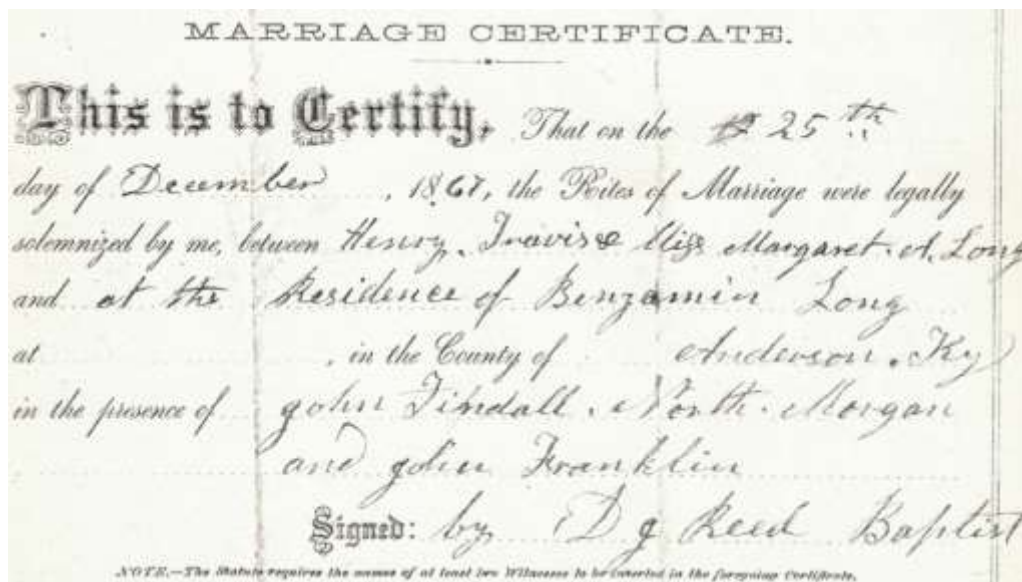 MARRIAGE CERTIFICATE.
This is to Certify, That on the 25th
day of December, 1867, the Rites of Marriage were legally
solemnized by me, between Henry. Travis & Miss Margaret. A. Long
and at the Residence of Benjamin Long
at , in the County of Anderson. Ky
in the presence of John Tindall. North. Morgan
and John Franklin
Signed: by D J Reed Baptist
NOTE.—The Statute requires the names of at least two Witnesses to be inserted in the foregoing Certificate.